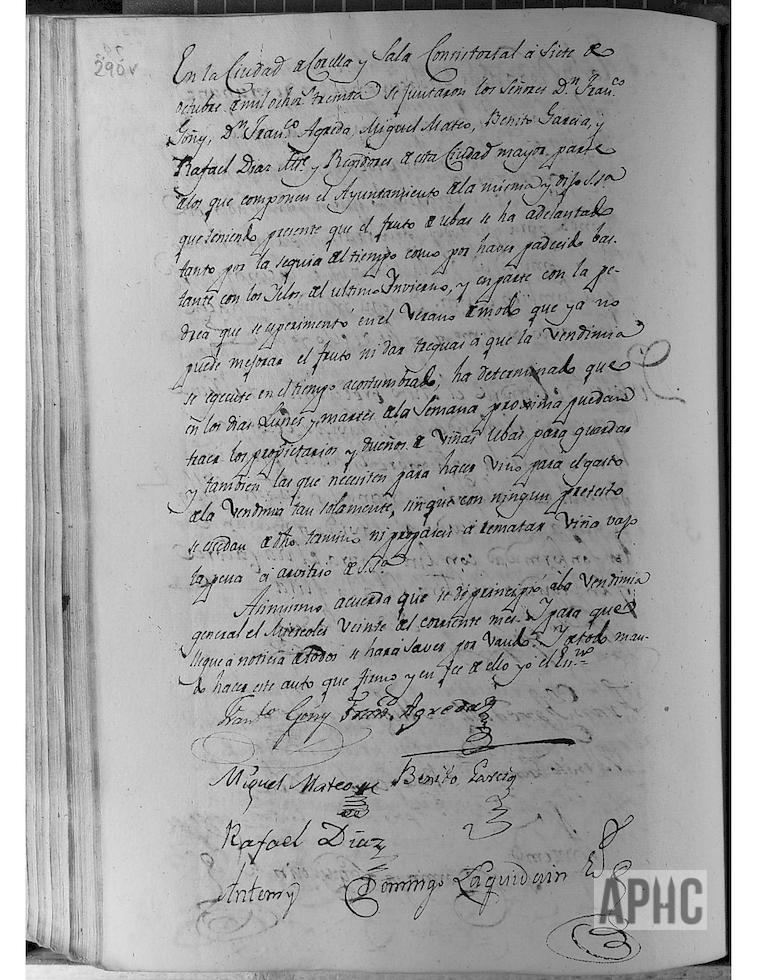 290v
En la Ciudad de Corella y Sala Consistorial a Siete de
octubre de mil ochos. treinta se juntaron los Señores D.n Fran.co
Goñy, D.n Fran.co Agreda, Miguel Mateo, Benito Garcia, y
Rafael Diaz Alc.e y Regidores de esta Ciudad mayor parte
de los que componen el Ayuntamiento de la misma y dijo S.Sa
que teniendo presente que el fruto de Ubas se ha adelantado
tanto por la sequia del tiempo como por haver padecido bas-
tante con los Yelos del ultimo Invierno, y en parte con la pe-
drea que se esperimentó en el Verano de modo que ya no
puede mejorar el fruto ni dar treguas a que la Vendimia
se egecute en el tiempo acostumbrado, ha determinado que
en los dias Lunes y martes de la Semana proxima puedan
traer los propietarios y dueños de Viñas Ubas para guardar
y tambien las que necesiten para hacer Vino para el gasto
de la Vendimia tan solamente, sin que con ningun pretesto
se escedan de dho termino ni propasen a rematar Viña vajo
la pena a arvitrio de S.Sa
Asimismo acuerda que se dé principio a la Vendimia
general el Miercoles Veinte del corriente mes. Y para que
llegue á noticia de todos se hará saver por Vando. Y de todo man-
do hacer este auto que firmo y en fee de ello yo el Es.no
Fran.co Goñy Fran.co Agreda
Miguel Mateo Benito Garcia
Rafael Diaz
Antemy Domingo Laquidain Es.
APHC